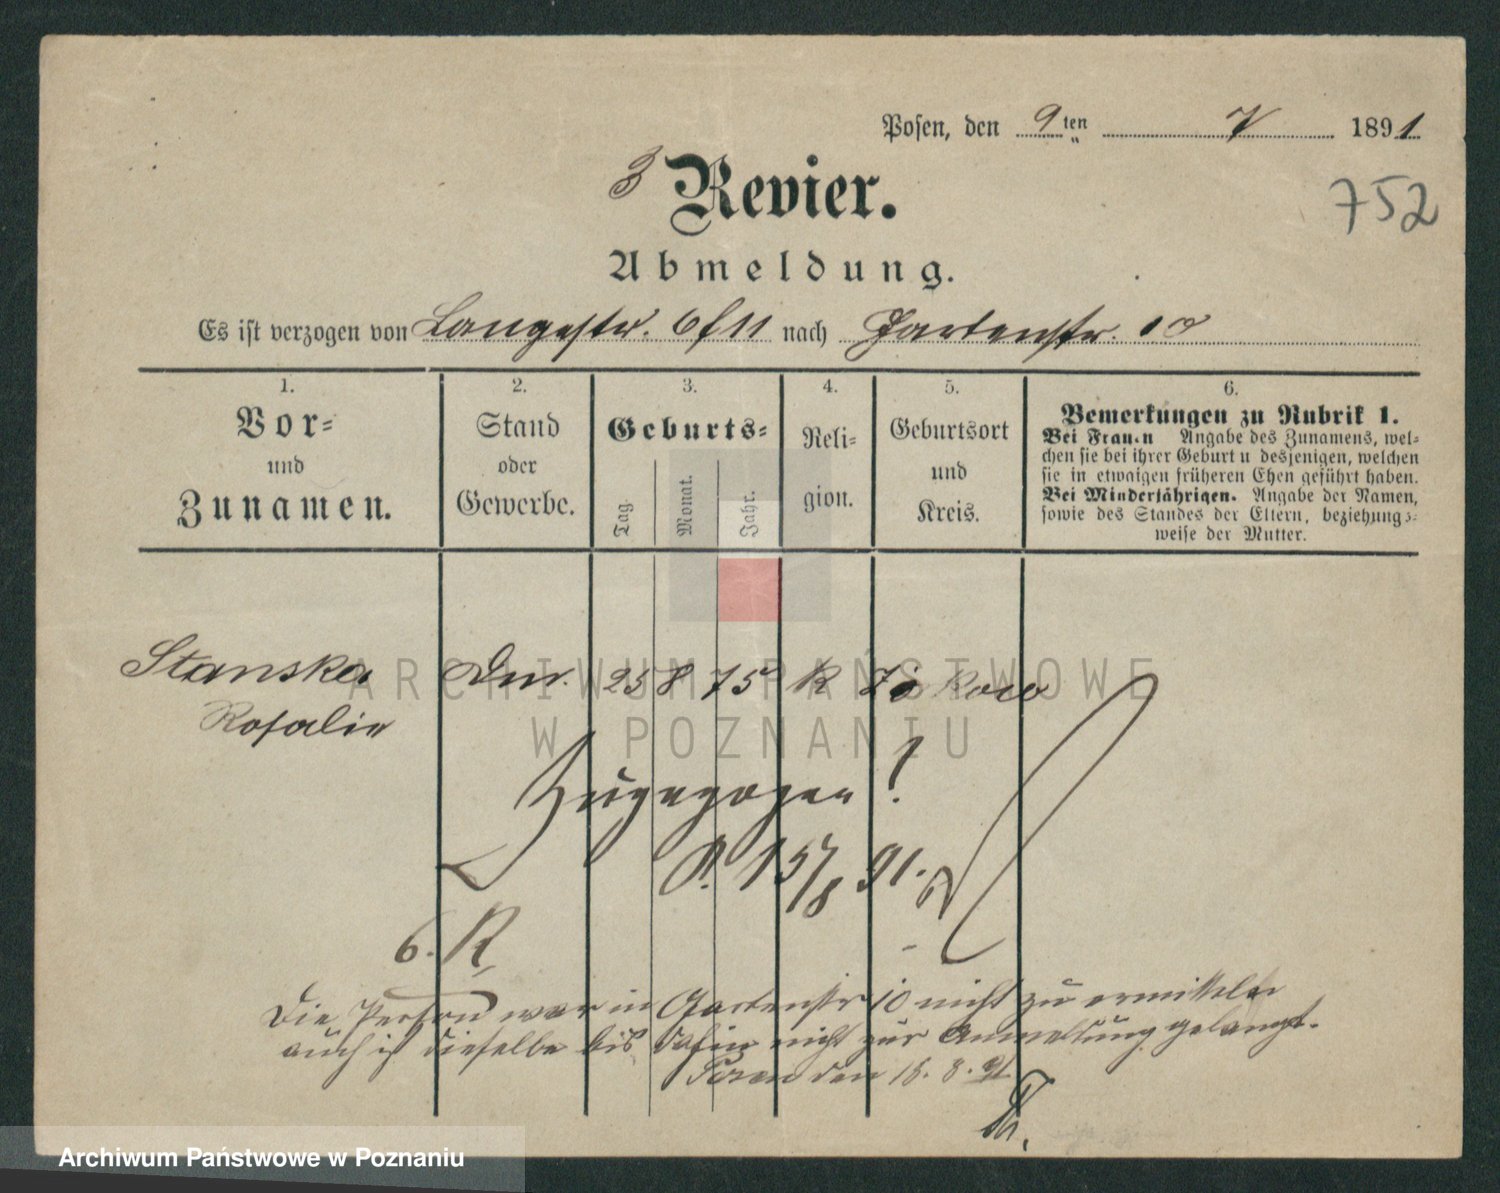 Posen, den 9ten 7 1891
3 Revier.
752
Abmeldung.
Es ist verzogen von Langestr. 6/11 nach Gartenstr. 10
1.
Vor-
und
Zunamen.
2.
Stand
oder
Gewerbe.
3.
Geburts-
Tag.
Monat.
Jahr.
4.
Reli-
gion.
5.
Geburtsort
und
Kreis.
6.
Bemerkungen zu Rubrik 1.
Bei Frauen Angabe des Zunamens, wel-
chen sie bei ihrer Geburt u desjenigen, welchen
sie in etwaigen früheren Ehen geführt haben.
Bei Minderjährigen. Angabe der Namen,
sowie des Standes der Eltern, beziehungs-
weise der Mutter.
Stanska 25 8 75 K
Rosalie
ARCHIWUM PAŃSTWOWE
W POZNANIU
Zugezogen?
P. 15/8 91.
6. R
Die Person war in Gartenstr 10 nicht zu ermitteln
auch ist dieselbe bis dahin nicht zur Anmeldung gelangt.
Posen den 18. 8. 91
Archiwum Państwowe w Poznaniu